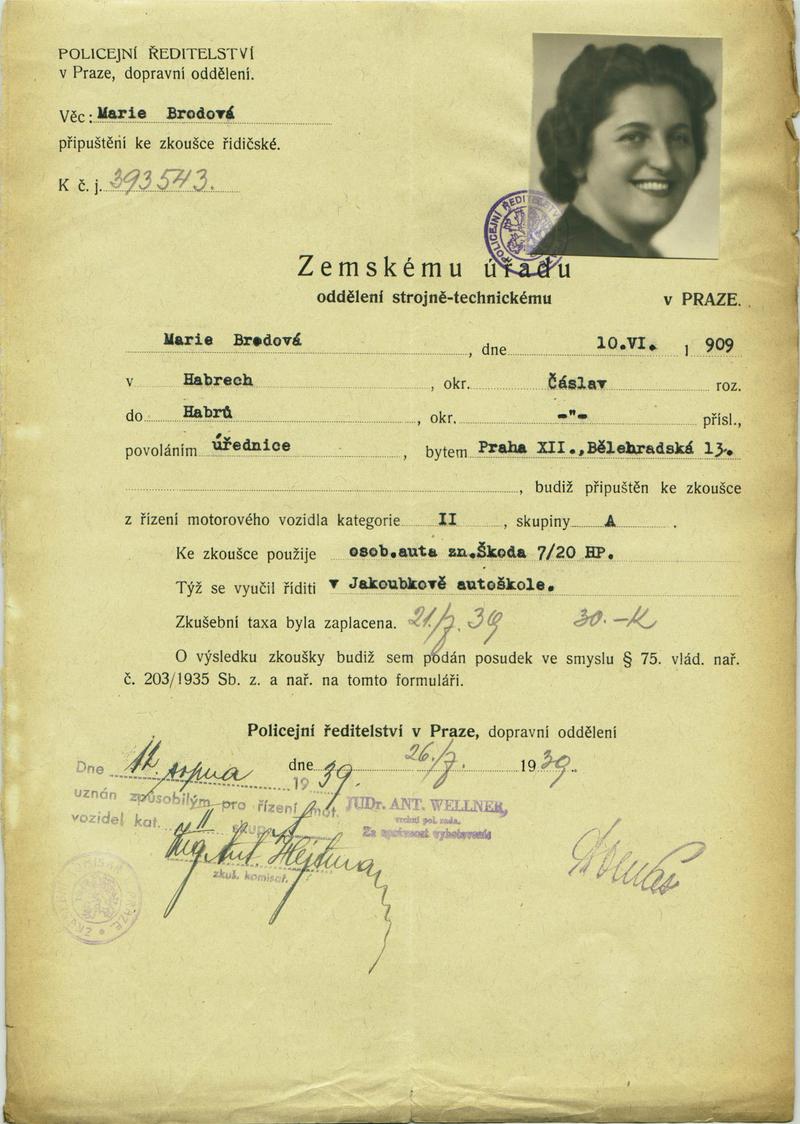 POLICEJNÍ ŘEDITELSTVÍ
v Praze, dopravní oddělení.
Věc: Marie Brodová
připuštění ke zkoušce řidičské.
K č. j. 393543.
POLICEJNÍ ŘEDITELSTV
Zemskému úřadu
oddělení strojně-technickému v PRAZE.
Marie Brodová , dne 10.VI. 1 909
v Habrech , okr. Čáslav roz.
do Habrů , okr. -"- přísl.,
povoláním úřednice , bytem Praha XII.,Bělehradská 13.
, budiž připuštěn ke zkoušce
z řízení motorového vozidla kategorie II , skupiny A .
Ke zkoušce použije osob.auta zn.Škoda 7/20 HP.
Týž se vyučil říditi v Jakoubkově autoškole.
Zkušební taxa byla zaplacena. 21/7. 39 30.-K
O výsledku zkoušky budiž sem podán posudek ve smyslu § 75. vlád. nař.
č. 203/1935 Sb. z. a nař. na tomto formuláři.
Policejní ředitelství v Praze, dopravní oddělení
dne 26/7. 1939.
Dne 12. srpna 1939.
uznán způsobilým pro řízení mot.
vozidel kat. II skup. A
JUDr. ANT. WELLNER,
vrchní pol. rada.
Za správnost vyhotovení
Ing. Ant. Hejtman
zkuš. komisař.